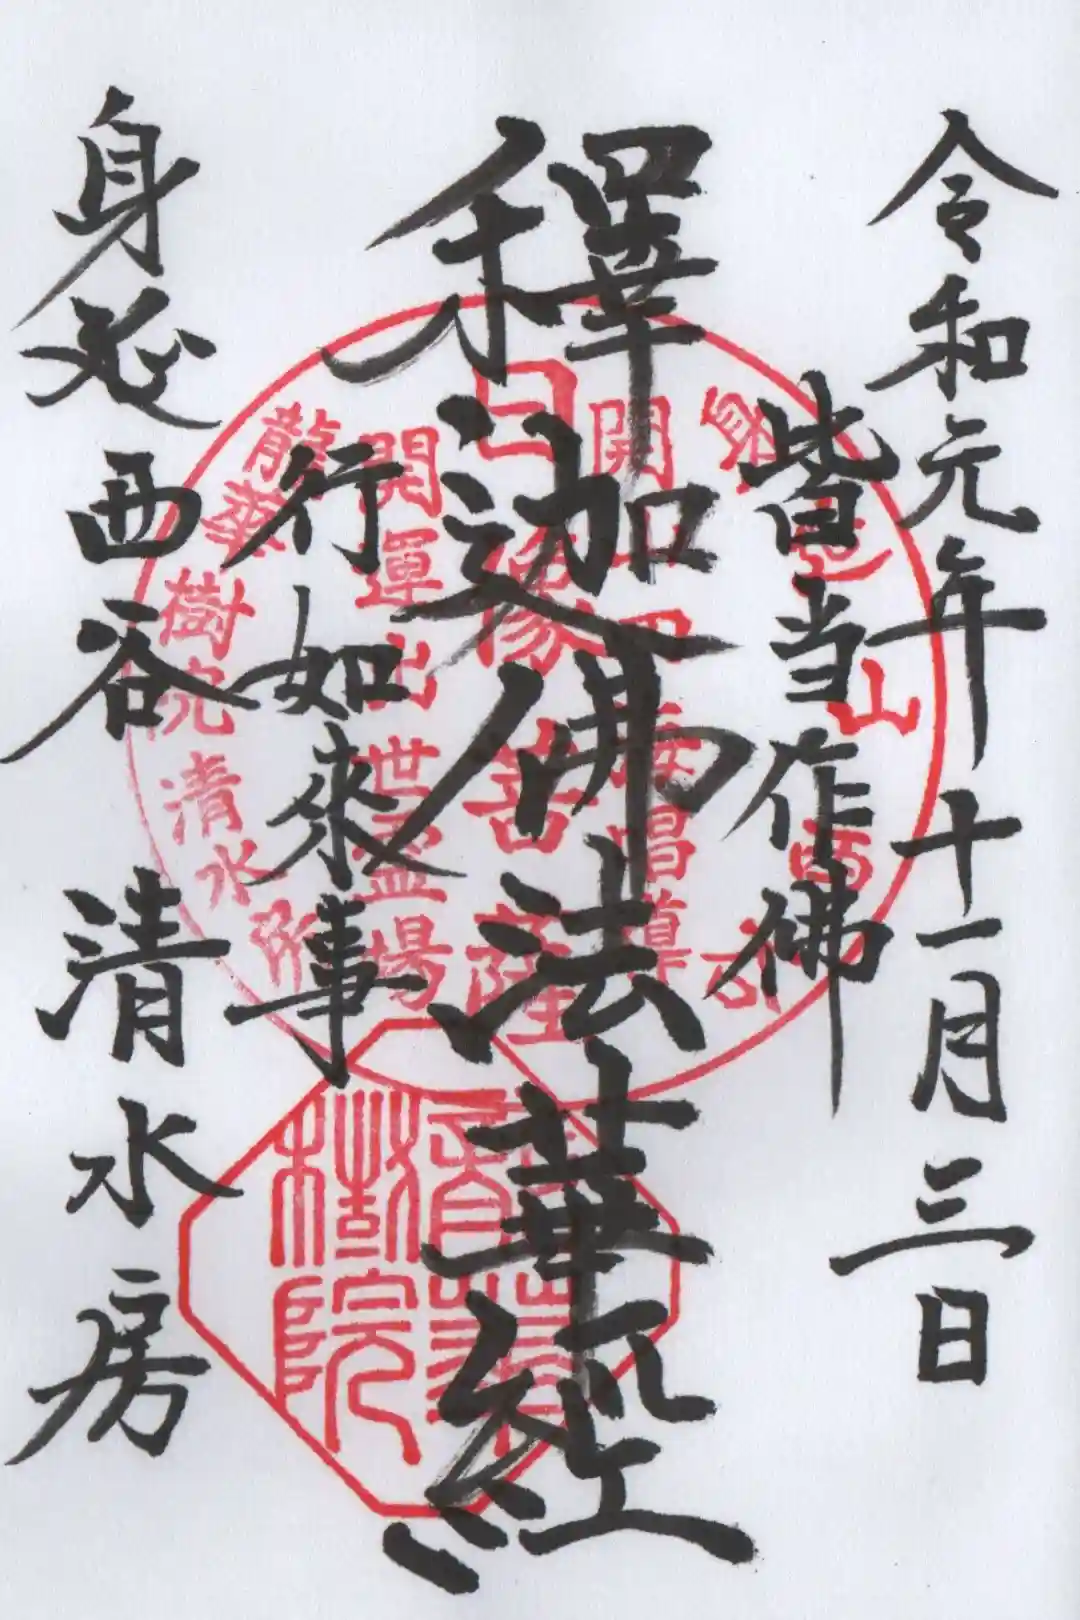 令和元年十一月三日
皆当作佛
釋迦佛法華經
行如来事
身延西谷 清水房
身延山西谷
開運出世霊場
龍華樹院清水房
龍華
樹院